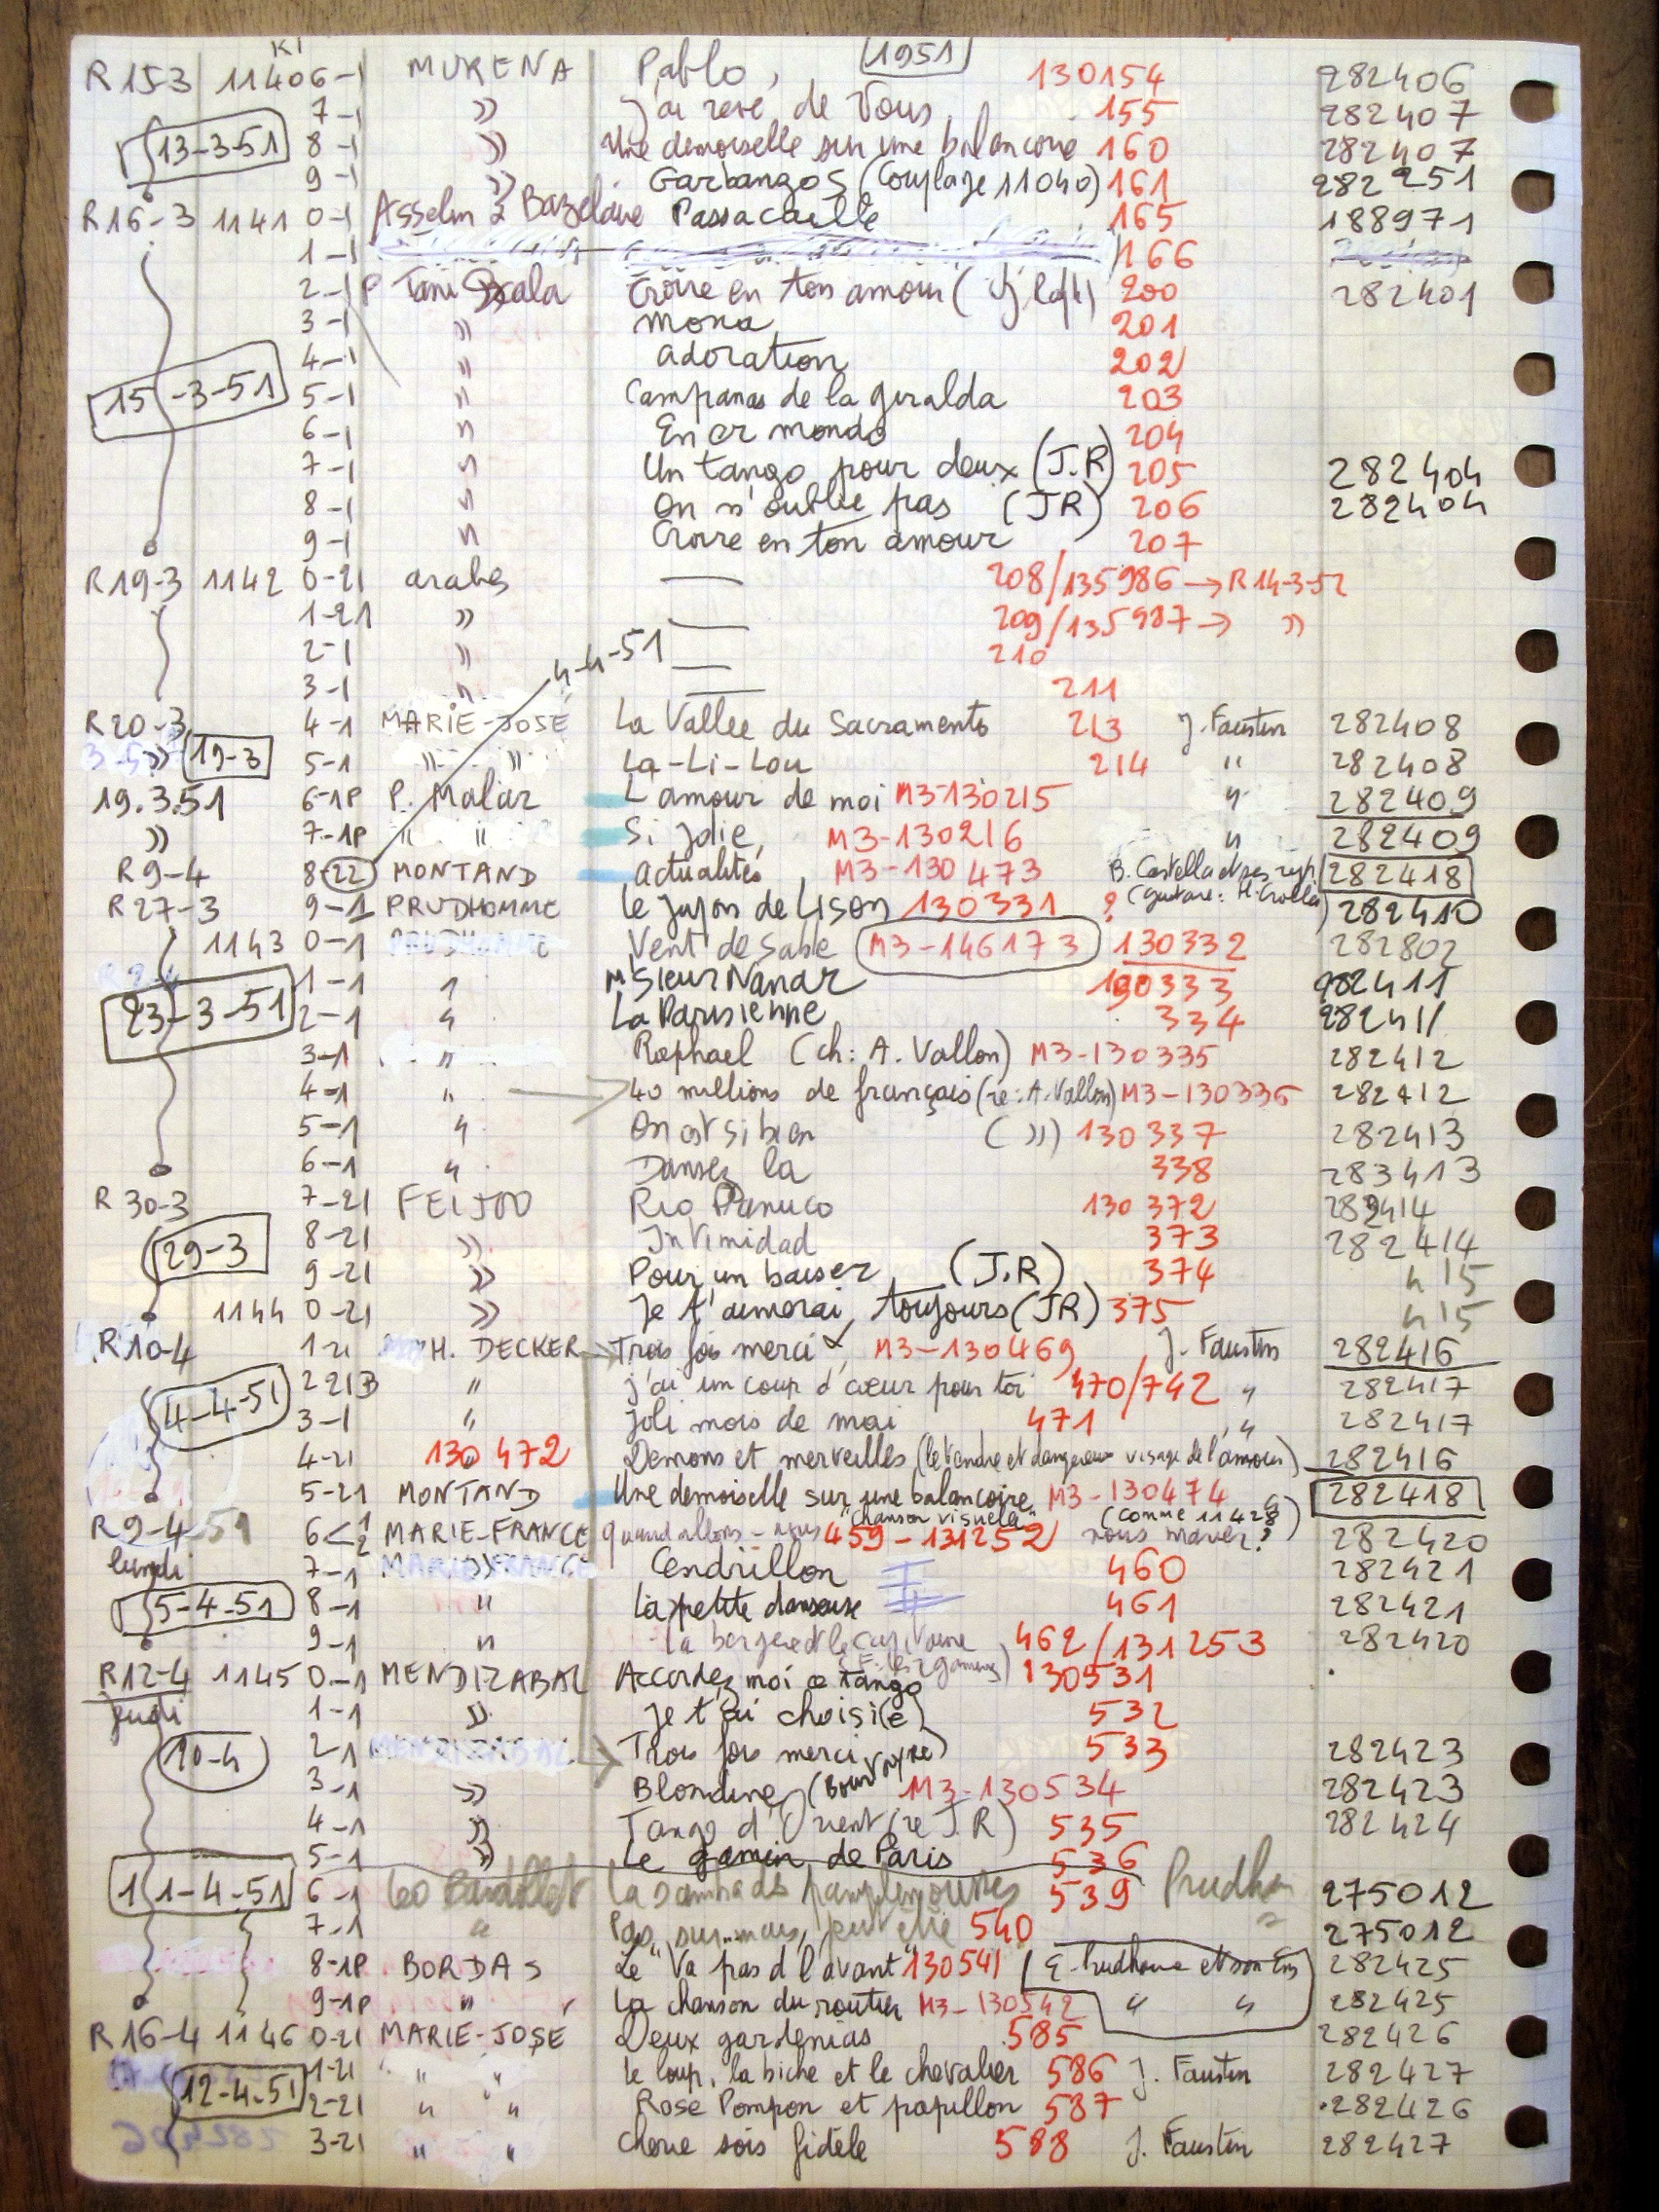 K1
R 15-3 11406-1 MURENA Pablo, 1951 130154 282406
7-1 » J'ai revé de Vous 155 282407
13-3-51 8-1 » Une demoiselle sur une balancoire 160 282407
9-1 » Garbanzos (Couplage 11040) 161 282251
R16-3 1141 0-1 Asselin & Bazelaire Passacaille 165 188971
1-1 166
2-1 P Tani Scala Croire en ton amour ( 200 282401
3-1 » Mona 201
4-1 » adoration 202
15-3-51 5-1 " Campanas de la giralda 203
6-1 " En er mondo 204
7-1 " Un tango pour deux (J.R) 205 282404
8-1 " On n'oublie pas (JR) 206 282404
9-1 " Croire en ton amour 207
R19-3 1142 0-21 arabes — 208/135986 → R14-3-52
1-21 » — 209/135987 → »
2-1 » 4-4-51 — 210
3-1 " — 211
R20-3 4-1 MARIE-JOSÉ La Vallee du Sacramento 213 J. Faustin 282408
» 19-3 5-1 " " La-Li-Lou 214 " 282408
19.3.51 6-1P P. Malar L'amour de moi M3-130215 " 282409
» 7-1P " " Si jolie, M3-130216 " 282409
R9-4 8-22 MONTAND actualités, M3-130473 B. Castella et ses ryt. 282418
R27-3 9-1 PRUDHOMME Le jupon de Lison 130331 ? (guitare: H. Crolla) 282410
1143 0-1 Vent de Sable M3-146173 130332 282802
1-1 " M'Sieur Nanar 130333 282411
23-3-51 2-1 " La Parisienne 334 282411
3-1 " Raphael (ch: A. Vallon) M3-130335 282412
4-1 " 40 millions de français (re: A. Vallon) M3-130336 282412
5-1 " On est si bien ( » ) 130337 282413
6-1 " Dansez la 338 283413
R 30-3 7-21 FEIJOO Rio Panuco 130372 282414
29-3 8-21 » Intimidad 373 282414
9-21 » Pour un baiser (J.R) 374 415
1144 0-21 » Je t'aimerai toujours (JR) 375 415
R10-4 1-21 H. DECKER Trois fois merci, M3-130469 J. Faustin 282416
4-4-51 2 21B " j'ai un coup d'cœur pour toi 470/742 " 282417
3-1 " Joli mois de mai 471 " 282417
4-21 130472 Demons et merveilles (le tendre et dangereux visage de l'amour) 282416
5-21 MONTAND Une demoiselle sur une balancoire M3-130474 282418
"chanson visuelle" (comme 11428)
R9-4-51 6<1 2 MARIE-FRANCE quand allons-nous 459-131252 nous marier? 282420
lundi 7-1 Cendrillon 460 282421
5-4-51 8-1 " La petite danseuse 461 282421
9-1 " La bergere et le capitaine 462/131253 282420
R12-4 1145 0-1 MENDIZABAL Accordez moi ce tango 130531
jeudi 1-1 » Je t'ai choisi(e) 532
10-4 2-1 Trois fois merci 533 282423
3-1 » Blondine (Bourtayre) M3-130534 282423
4-1 » Tango d'Orient (re J.R) 535 282424
5-1 » Le gamin de Paris 536
11-4-51 6-1 La samba des pamplemousses 539 Prudhom 275012
7-1 " Pas sur..mais, peut etre 540 275012
8-1P BORDAS Le "Va pas d'l'avant" 130541 E. Prudhome et son Ens 282425
9-1P " La chanson du routier M3-130542 " " 282425
R16-4 1146 0-21 MARIE-JOSE Deux gardenias 585 282426
1-21 " " le loup, la biche et le chevalier 586 J. Faustin 282427
12-4-51 2-21 " " Rose Pompon et papillon 587 282426
3-21 " " Cherie sois fidele 588 J. Faustin 282427